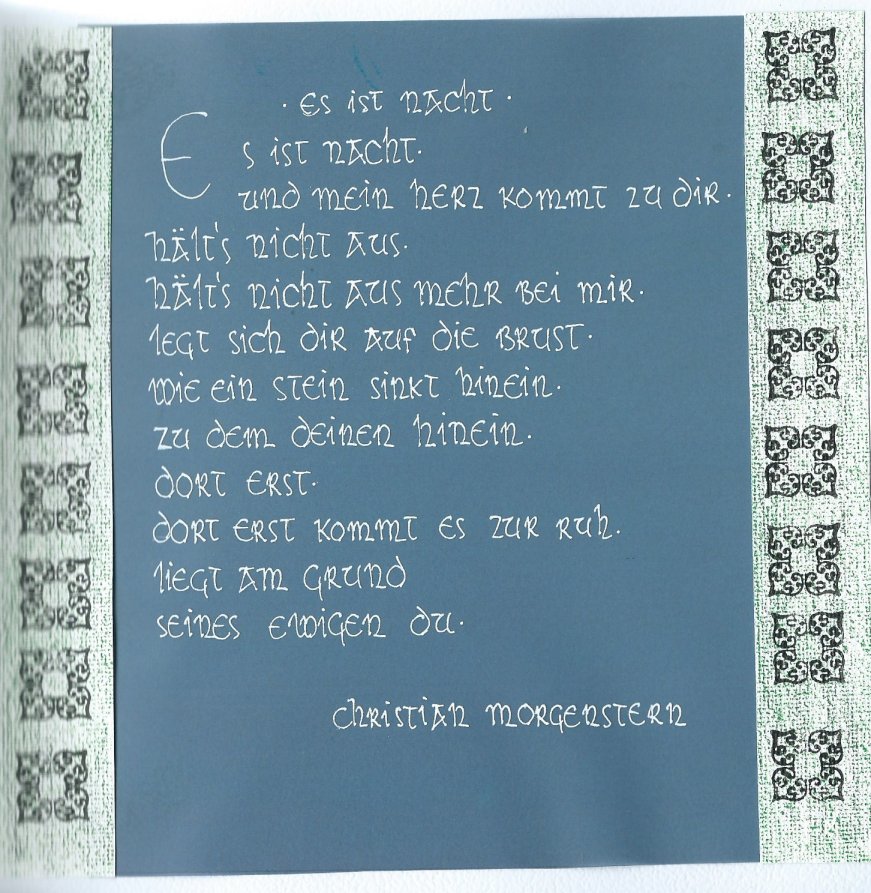 · Es ist Nacht ·
Es ist Nacht.
und mein Herz kommt zu dir.
hält's nicht aus.
hält's nicht aus mehr bei mir.
legt sich dir auf die Brust.
wie ein Stein sinkt hinein.
zu dem deinen hinein.
dort erst.
dort erst kommt es zur Ruh.
liegt am Grund
seines ewigen Du.
Christian Morgenstern